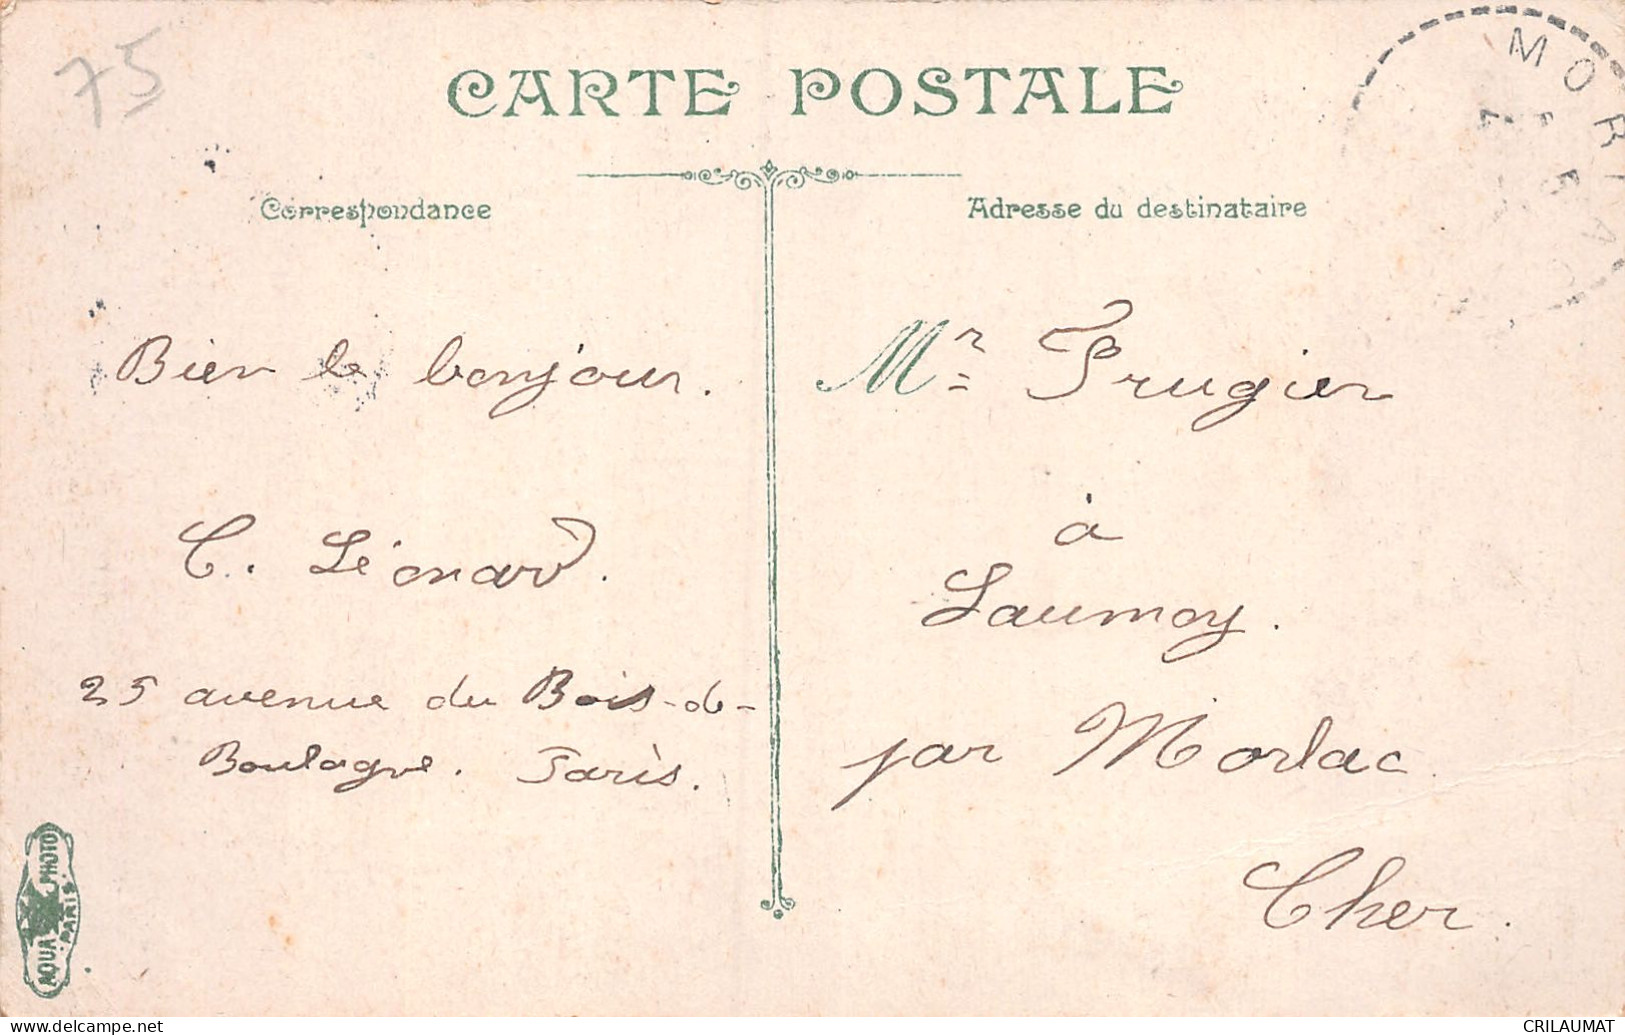 75
CARTE POSTALE
Correspondance
Adresse du destinataire
MORLAC
Bien le bonjour.
C. Léonard.
25 avenue du Bois-de-
Boulogne. Paris.
Mr Prugier
à
Laumoy.
par Morlac
Cher.
AQUA PHOTO
PARIS
www.delcampe.net
CRILAUMAT